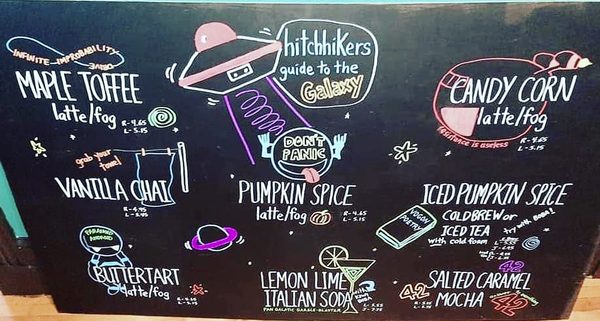 INFINITE-IMPROBABILITY
DRIVE
MAPLE TOFFEE
latte/fog
R - 4.65
L - 5.15
hitchhikers
guide to the
Galaxy
CANDY CORN
latte/fog
R - 4.65
L - 5.15
Resistance is useless
DON'T
PANIC
grab your
towel
VANILLA CHAI
R - 4.45
L - 4.95
PUMPKIN SPICE
latte/fog
R - 4.65
L - 5.15
ICED PUMPKIN SPICE
COLDBREW or
ICED TEA
with cold foam
try with boba!
VOGON
POETRY
PARANOID
ANDROID
BUTTERTART
latte/fog
R - 4.65
L - 5.15
LEMON LIME
ITALIAN SODA
PAN GALATIC GARGLE-BLASTER
L - 5.55
42
SALTED CARAMEL
MOCHA
42
42